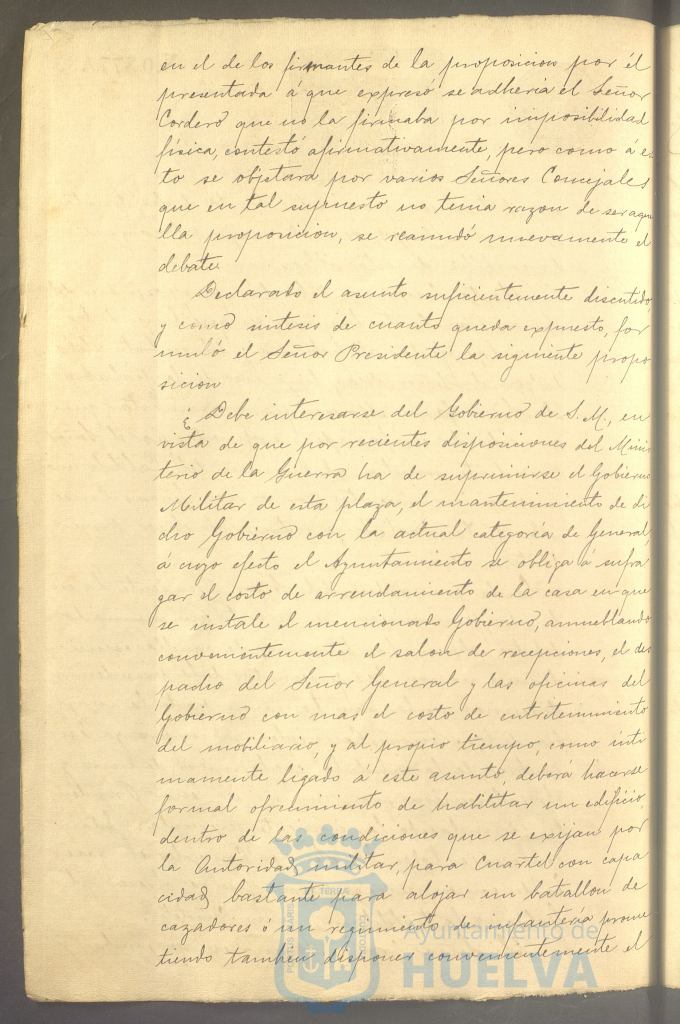 en el de los firmantes de la proposicion por él
presentada á que expresó se adheria el Señor
Cordero que no la firmaba por imposibilidad
física, contestó afirmativamente, pero como á es
to se objetara por varios Señores Concejales
que en tal supuesto no tenia razon de ser aque
lla proposicion, se reanudó nuevamente el
debate.
Declarado el asunto suficientemente discutido,
y como sintesis de cuanto queda expuesto, for
muló el Señor Presidente la siguiente propo
sicion
¿Debe interesarse del Gobierno de S. M., en
vista de que por recientes disposiciones del Minis
terio de la Guerra ha de suprimirse el Gobierno
Militar de esta plaza, el mantenimiento de di
cho Gobierno con la actual categoria de General,
á cuyo efecto el Ayuntamiento se obliga á sufra
gar el costo de arrendamiento de la casa en que
se instale el mencionado Gobierno, amueblando
convenientemente el salon de recepciones, el des
pacho del Señor General y las oficinas del
Gobierno con mas el costo de entretenimiento
del mobiliario, y al propio tiempo, como inti
mamente ligado á este asunto, deberá hacerse
formal ofrecimiento de habilitar un edificio
dentro de las condiciones que se exijan por
la Autoridad militar, para Cuartel con capa
cidad bastante para alojar un batallon de
cazadores ó un regimiento de infanteria prome
tiendo tambien disponer convenientemente el
Ayuntamiento de
HUELVA